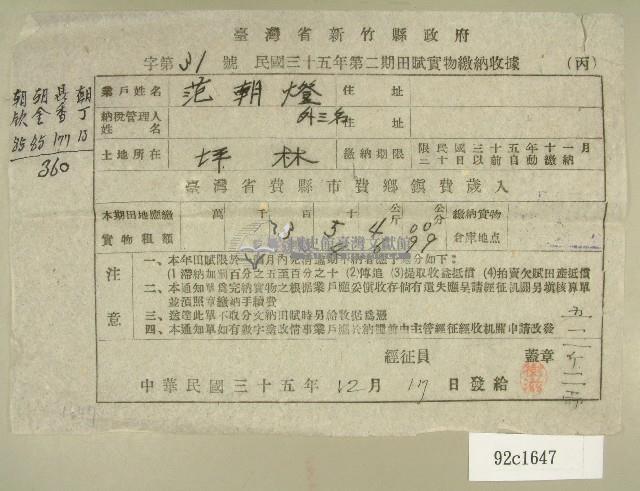 臺灣省新竹縣政府
字第31號 民國三十五年第二期田賦實物繳納收據 (丙)
業戶姓名 范朝燈 住址
外三名
納稅管理人姓名 住址
土地所在 坪林 繳納期限 限民國三十五年十一月二十日以前自動繳納
臺灣省費縣市費鄉鎮費歲入
本期田地應繳實物租額 萬 千 百 十 公斤 公分 繳納實物倉庫地点
注意
一、本年田賦限於
(1滯納加罰百分之五至百分之十 (2)傳追 (3)提取收益抵償 (4)拍賣欠賦田產抵償
二、本通知單為完納實物之根據業戶應妥慎收存倘有遺失應呈請經征机關另填核算單
並預照章繳納手續費
三、送達此單不取分文納田賦時另給收据為憑
四、本通知單如有
經征員 蓋章
中華民國三十五年12月17日發給
朝丁 13
昌香 177
朝金 85
朝欽 85
360
92c1647